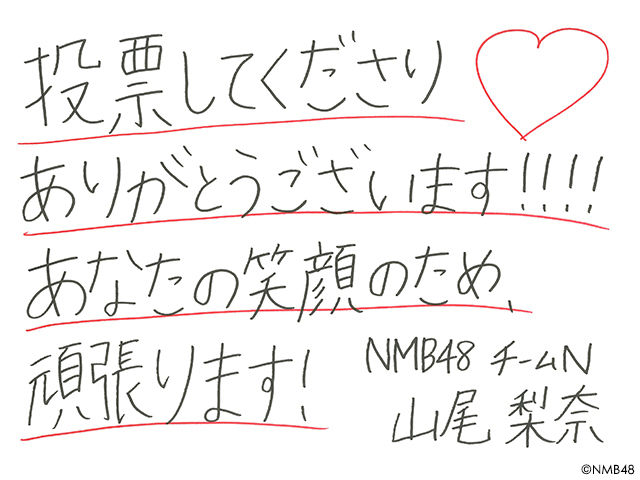 投票してくださり
ありがとうございます!!!!
あなたの笑顔のため、
頑張ります!
NMB48 チームN
山尾 梨奈
©NMB48